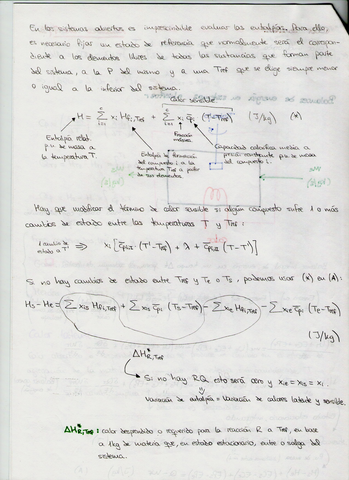 En los sistemas abiertos es imprescindible evaluar las entalpías. Para ello,
es necesario fijar un estado de referencia que normalmente será el correspon-
diente a los elementos libres de todas las sustancias que forman parte
del sistema, a la P del mismo y a una Tref que se elige siempre menor
o igual a la inferior del sistema.
calor sensible
H = Σ xi Hfi,Tref + Σ xi c̄pi (T-Tref) (J/kg) (*)
Entalpía relat.
p.u. de masa a
la temperatura T
Entalpía de formación
del compuesto i a la
temperatura Tref a partir
de sus elementos
Fracción
másica
Capacidad calorífica media a
presión constante p.u. de masa
del compuesto i
Hay que modificar el término de calor sensible si algún compuesto sufre 1 o más
cambios de estado entre las temperaturas T y Tref:
1 cambio de
estado a T' ⇒ xi [c̄pi1 · (T'-Tref) + λ + c̄pi2 (T-T')]
Si no hay cambios de estado entre Tref y Te o Ts, podemos usar (*) en (A):
Hs - He = Σ xis Hfi,Tref + Σ xis c̄pi (Ts-Tref) - Σ xie Hfi,Tref - Σ xie c̄pi (Te-Tref)
(J/kg)
ΔH°R,Tref
Si no hay RQ esto será cero y xie = xis = xi
Variación de entalpía = Variación de calores latente y sensible.
ΔH°R,Tref : calor desprendido o requerido para la reacción R a Tref, en base
a 1 kg de materia que, en estado estacionario, entre o salga del
sistema.